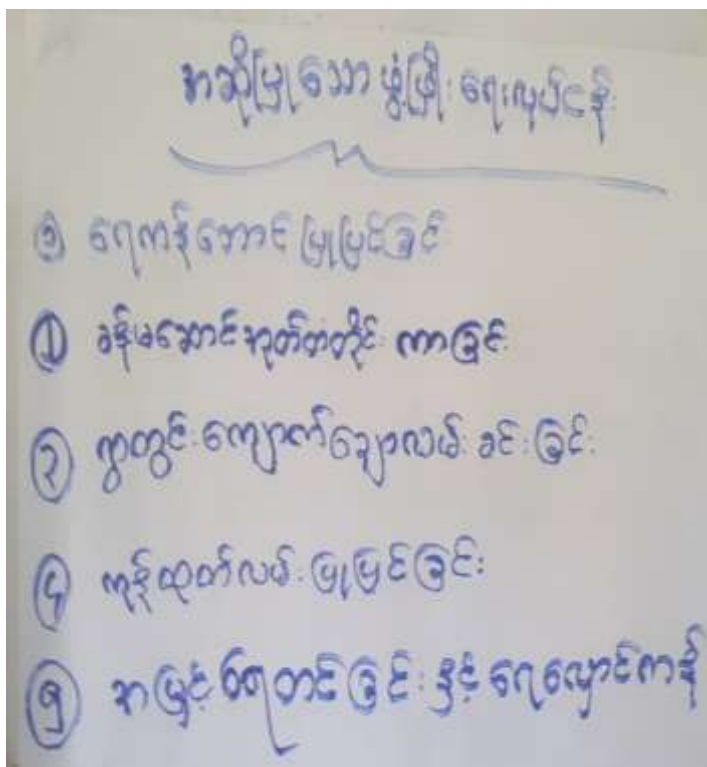 အဆိုပြုသော ဖွံ့ဖြိုးရေးလုပ်ငန်း
၁ ရေကန်ဘောင် ပြုပြင်ခြင်း
၂ ခန်းမဆောင် အုတ်တံတိုင်း ကာခြင်း
၃ ရွာတွင်း ကျောက်ချောလမ်း ခင်းခြင်း
၄ ကုန်ထုတ်လမ်း ပြုပြင်ခြင်း
၅ အမြင့် ရေတင်ခြင်း နှင့် ရေလှောင်ကန်